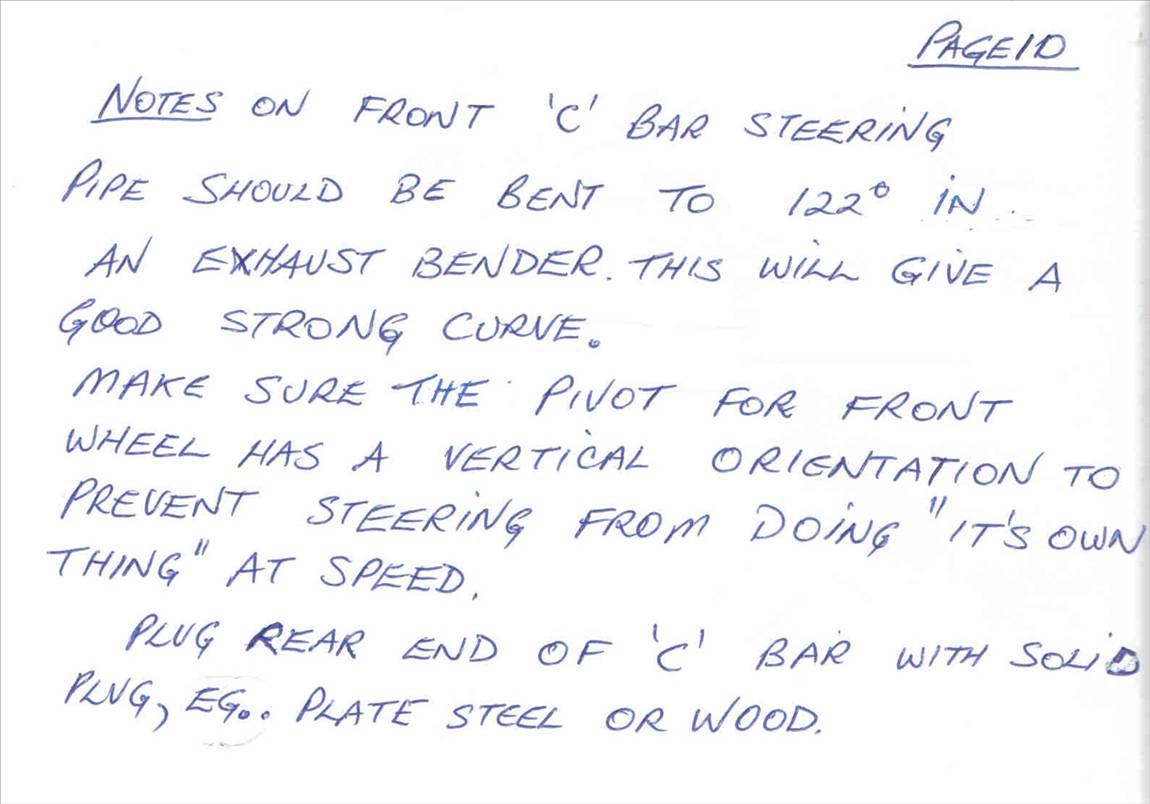 PAGE 1D
NOTES ON FRONT 'C' BAR STEERING
PIPE SHOULD BE BENT TO 122° IN
AN EXHAUST BENDER. THIS WILL GIVE A
GOOD STRONG CURVE.
MAKE SURE THE PIVOT FOR FRONT
WHEEL HAS A VERTICAL ORIENTATION TO
PREVENT STEERING FROM DOING "IT'S OWN
THING" AT SPEED.
PLUG REAR END OF 'C' BAR WITH SOLID
PLUG, EG.. PLATE STEEL OR WOOD.